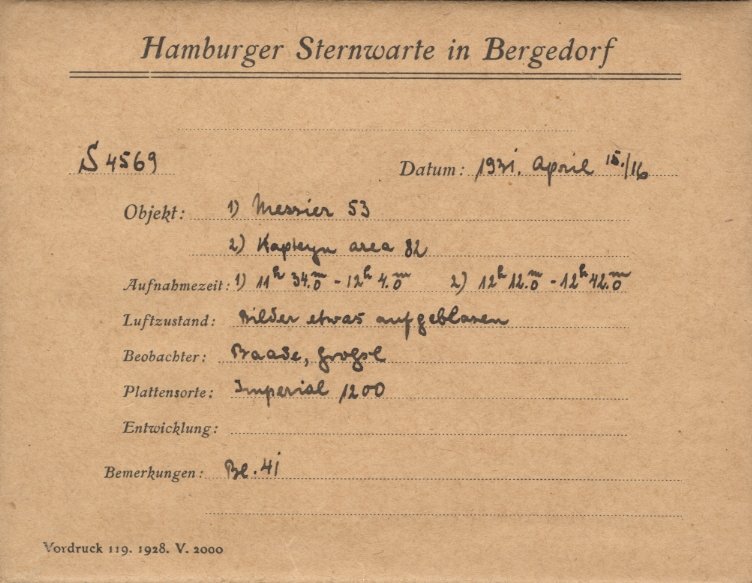 Hamburger Sternwarte in Bergedorf
S 4569 Datum: 1931. April 15./16
Objekt: 1) Messier 53
2) Kapteyn area 82
Aufnahmezeit: 1) 11h 34.m0 - 12h 4.m0 2) 12h 12.m0 - 12h 42.m0
Luftzustand: Bilder etwas aufgeblasen
Beobachter: Baade,
Plattensorte: Imperial 1200
Entwicklung:
Bemerkungen: Be. 41
Vordruck 119. 1928. V. 2000